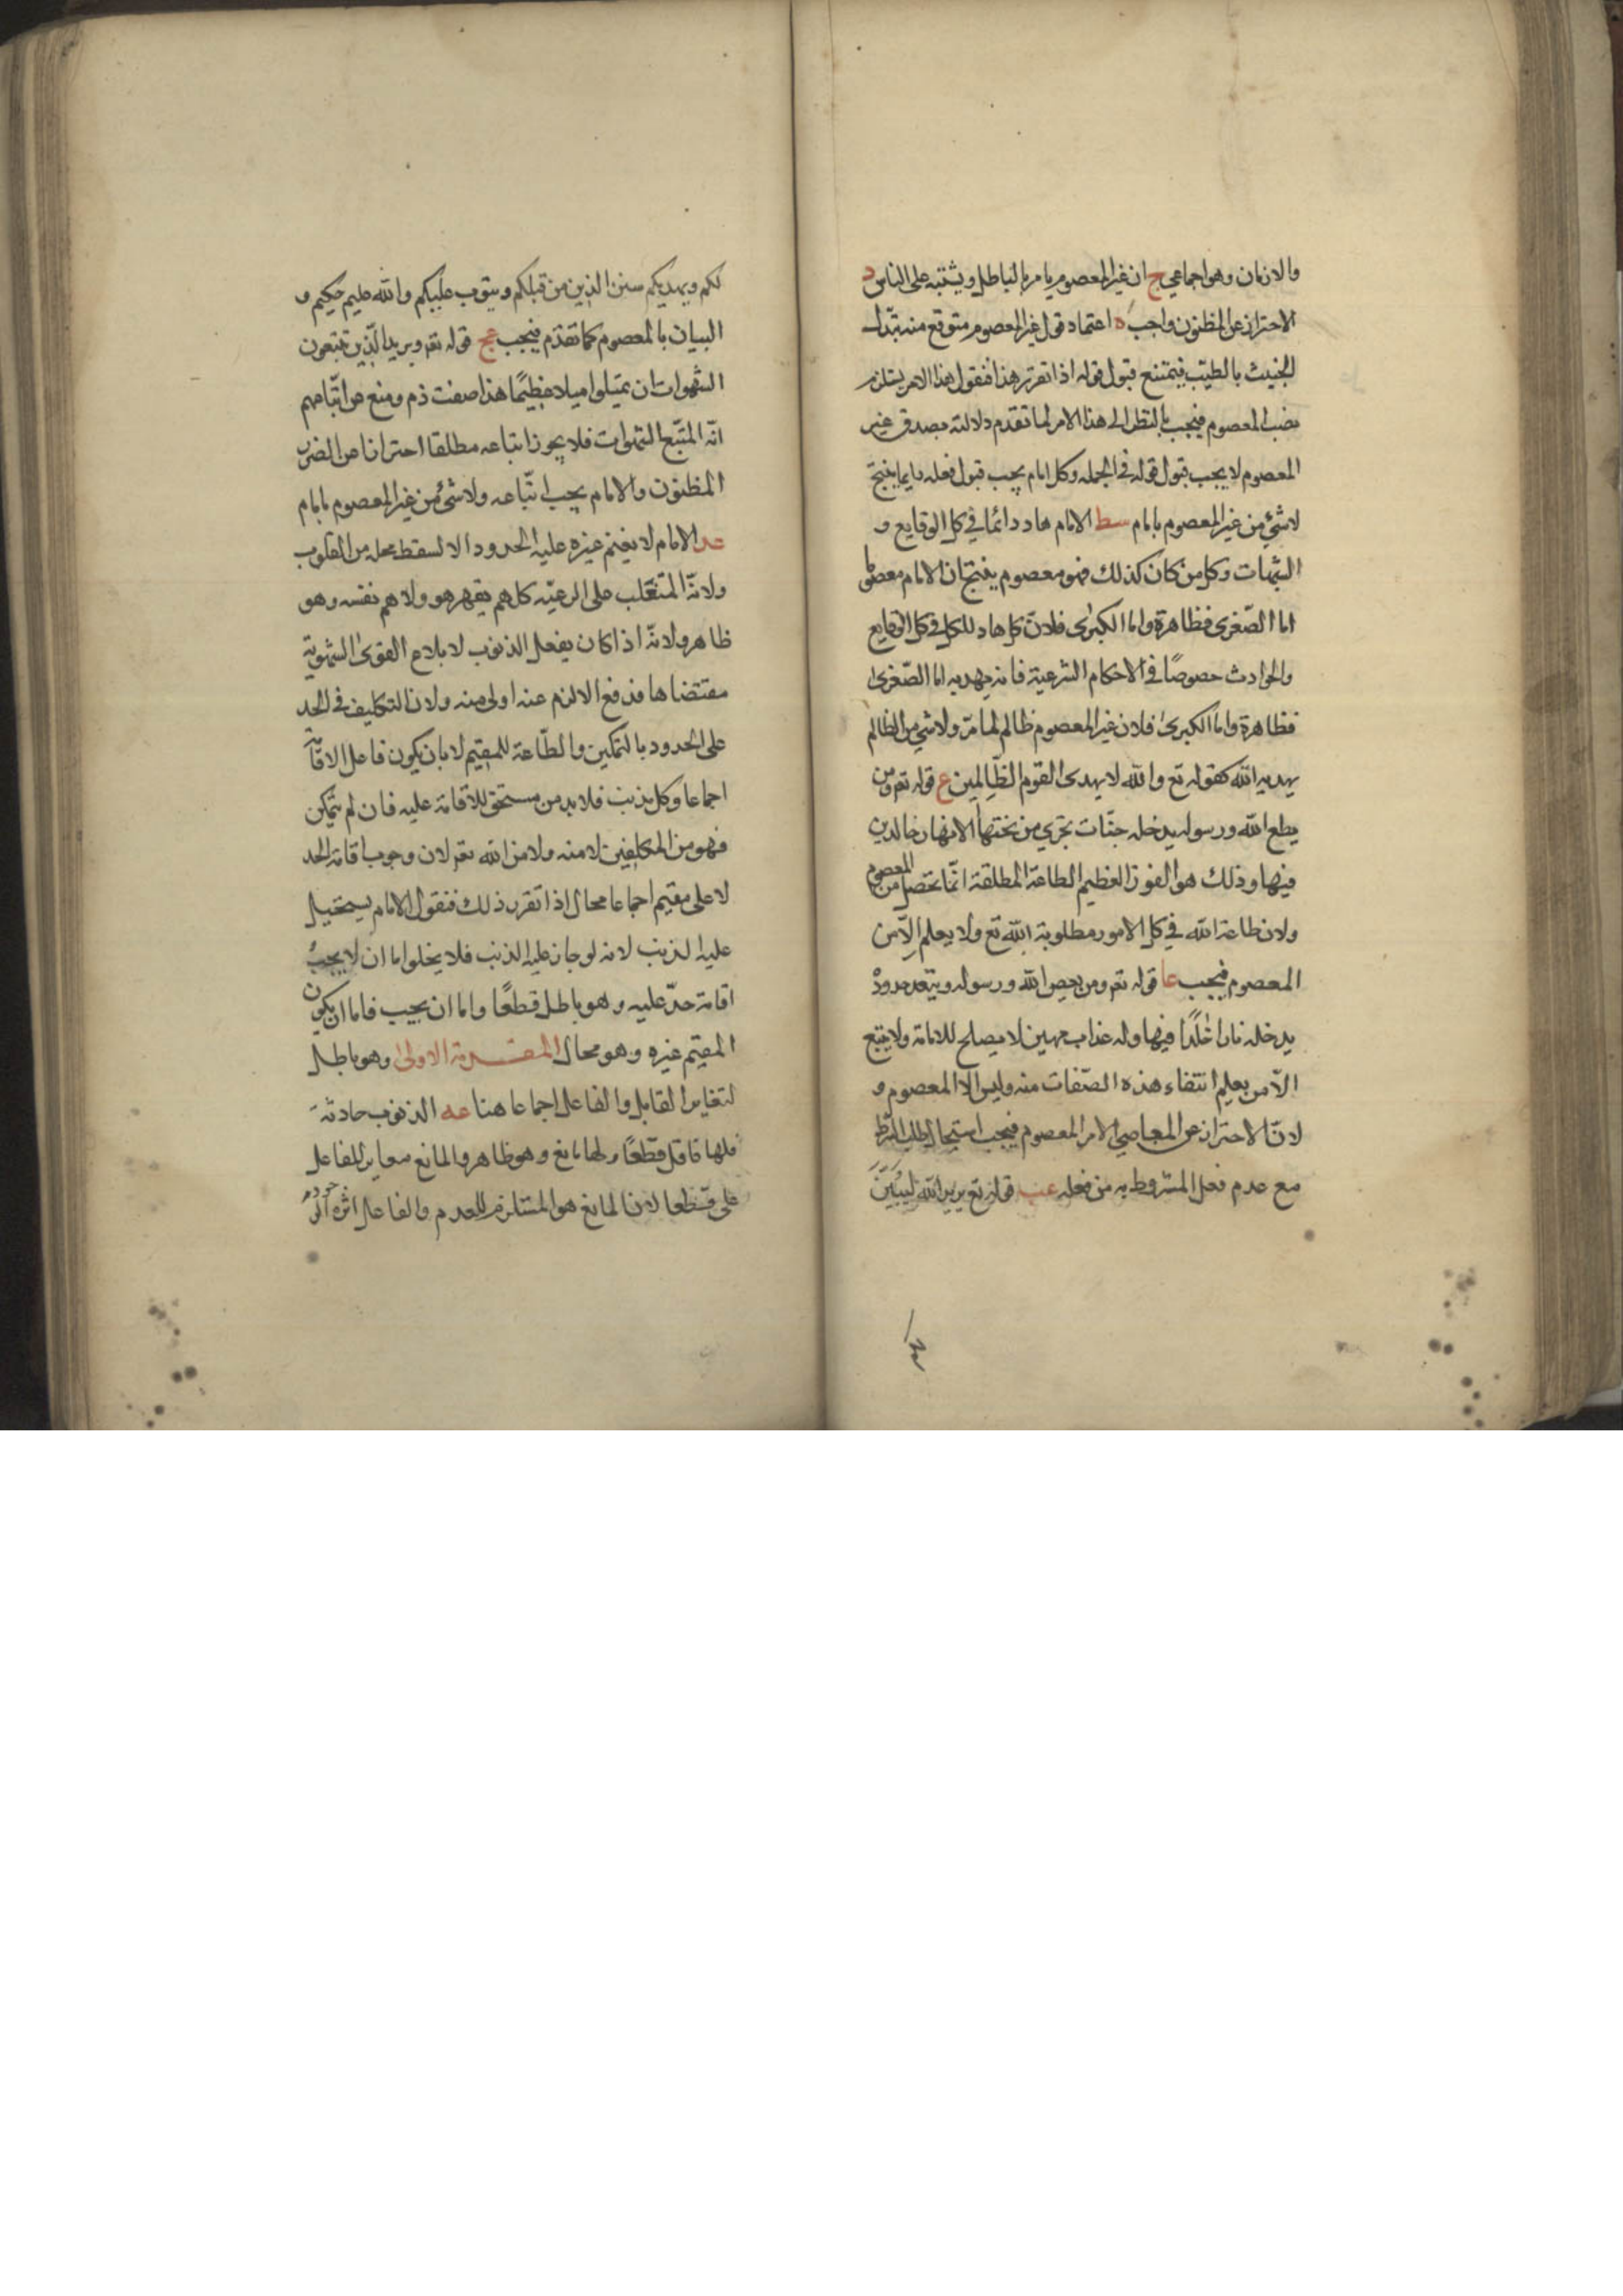 والازمان وهو اجماعي ج ان غير المعصوم يامر بالباطل ويشتبه على الناس د
الاحتراز عن المظنون واجب ه اعتماد قول غير المعصوم متوقع منه تبدّل
الخبيث بالطيّب فيمتنع قبول قوله اذا تقرّر هذا فنقول هذا الامر يستلزم
نصب المعصوم فيجب بالنظر الى هذا الامر لما تقدم دلالته بصدق غير
المعصوم لا يجب قبول قوله في الجمله وكل امام يجب قبول فعله دايما ينتج
لا شئ من غير المعصوم بامام سط الامام هاد دائما في كل الوقايع و
الشبهات وكل من كان كذلك فهو معصوم ينتج ان الامام معصوم
اما الصّغرى فظاهرة واما الكبرى فلانّ كل هاد للكل في كل الوقايع
والحوادث خصوصًا في الاحكام الشرعية فانه يهديه اما الصّغرى
فظاهرة واما الكبرى فلان غير المعصوم ظالم لما مرّ ولا شئ من الظالم
يهديه الله كقوله تع والله لا يهدى القوم الظّالمين ع قوله تع ومن
يطع الله ورسوله يدخله جنّات تجري من تحتها الانهار خالدين
فيها وذلك هو الفوز العظيم الطاعة المطلقة انّما تحصل من المعصوم
ولان طاعة الله في كل الامور مطلوبة لله تع ولا يعلم الّا من
المعصوم فيجب عا قوله تع ومن يعص الله ورسوله ويتعد حدوده
يدخله نارا خٰلدًا فيها وله عذاب مهين لا يصلح للامامة ولا يتبع
الّا من يعلم انتفاء هذه الصّفات منه وليس الا المعصوم و
لانّ الاحتراز عن المعاصي الامر المعصوم فيجب استيحال طلب الشرط
مع عدم فعل المشروط به من فعله عب قوله تع يريد الله ليبيّن
لكم ويهديكم سنن الذين من قبلكم ويتوب عليكم والله عليم حكيم و
البيان بالمعصوم كما تقدّم فيجب عج قوله تع ويريد الّذين تتبعون
الشهوات ان تميلوا ميلا عظيمًا هذا صفت ذم ومنع عن اتّباعهم
انّه المتّبع الشهوات فلا يجوز اتباعه مطلقا احترازا عن الضرر
المظنون والامام يجب اتّباعه ولا شئ من غير المعصوم بامام
عد الامام لا يقيم غيره عليه الحدود الا لسقط محله من القلوب
ولانّه المتغلب على الرعيّه كلهم يقهر هو ولا هم نفسه وهو
ظاهر ولانّه اذا كان يفعل الذنوب لا بلاع القوى الشهوية
مقتضاها فدفع الالزم عنه اولى منه ولان التكليف في الحد
على الحدود بالتمكين والطّاعة للمقيم لا بان يكون فاعل الاقامة
اجماعا وكل يذنب فلا بد من مستحق للاقامة عليه فان لم يتمكن
فهو من المكلفين لا منه ولا من الله تع لان وجوب اقامة الحد
لا على مقيم اجماعا محال اذا تقرر ذلك فنقول الامام يستحيل
عليه الذنب لانه لو جاز عليه الذنب فلا يخلوا اما ان لا يجب
اقامة حدّ عليه وهو باطل قطعًا واما ان يجيب فاما ان يكون
المقيم غيره وهو محال المقدمة الاولى وهو باطل
لتغاير القابل والفاعل اجماعا هنا عه الذنوب حادثة
فلها فاعل قطعًا ولها مانع وهو ظاهر والمانع مغاير للفاعل
على قطعا لان المانع هو المستلزم للعدم والفاعل اثره